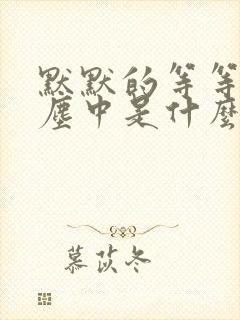 默默的等等
塵中是什麼
慕茨冬